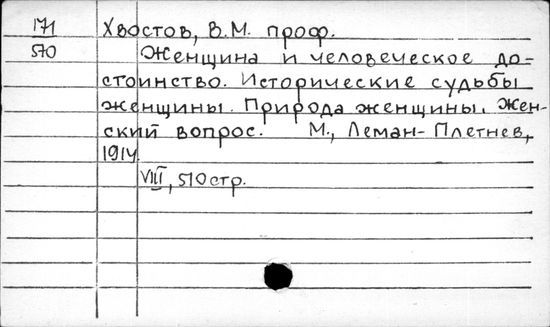 171 Хвостов, В.М. проф.
570 Женщина и человеческое до=
стоинство. Исторические судьбы
женщины. Природа женщины. Жен-
ский вопрос. М., Леман-Плетнев,
1914.
VIII, 510 стр.